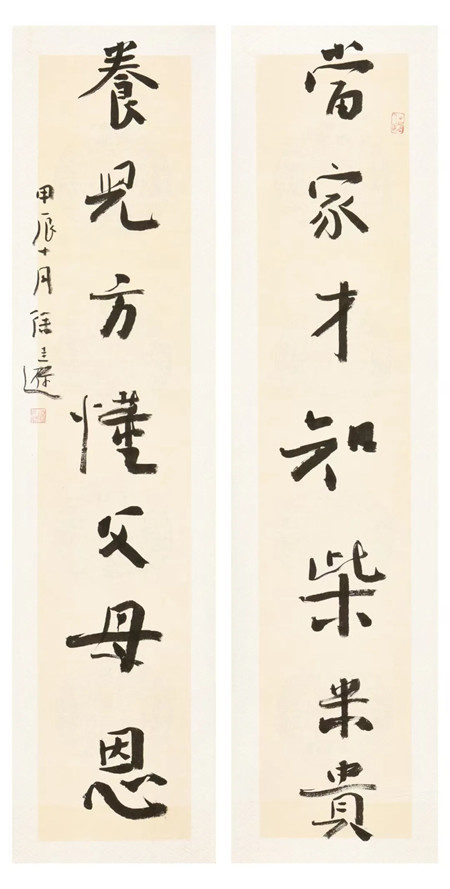 當家才知柴米貴
養兒方懂父母恩
甲辰十月徐